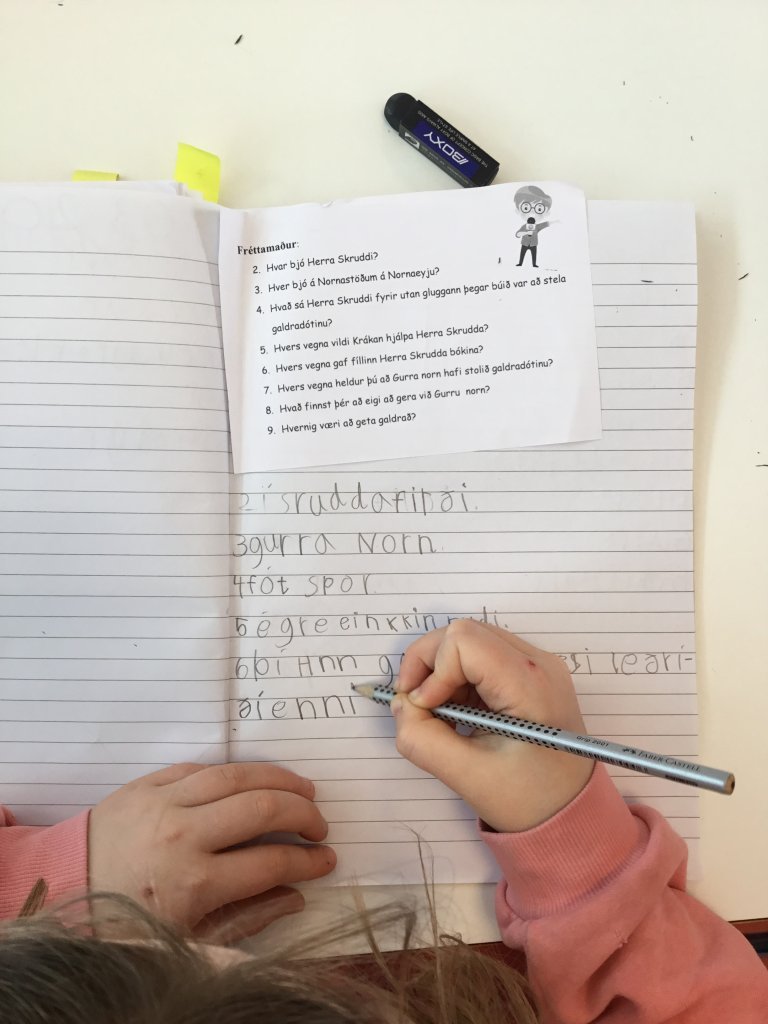 BOXY
Fréttamaður:
2. Hvar bjó Herra Skruddi?
3. Hver bjó á Nornastöðum á Nornaeyju?
4. Hvað sá Herra Skruddi fyrir utan gluggann þegar búið var að stela
galdradótinu?
5. Hvers vegna vildi Krákan hjálpa Herra Skrudda?
6. Hvers vegna gaf fíllinn Herra Skrudda bókina?
7. Hvers vegna heldur þú að Gurra norn hafi stolið galdradótinu?
8. Hvað finnst þér að eigi að gera við Gurru norn?
9. Hvernig væri að geta galdrað?
2 í
3 gurra Norn.
4 fót spor
5
6 þí Hnn
ðíenni
Grip 2001 FABER-CASTELL